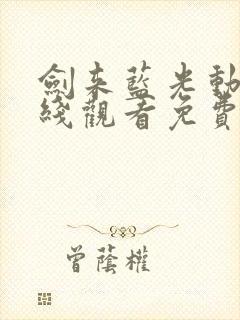 劍来藍光動
綫觀看免費
曾蔭權